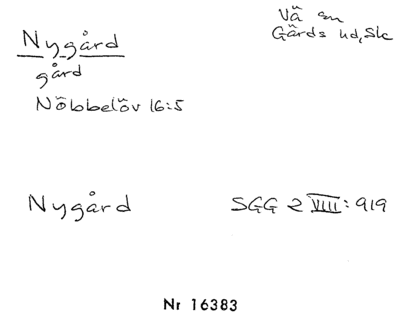 Nygård
Vä sn
Gärds hd, Sk
gård
Nöbbelöv 16:5
Nygård SGG 2 VIII: 919
Nr 16383